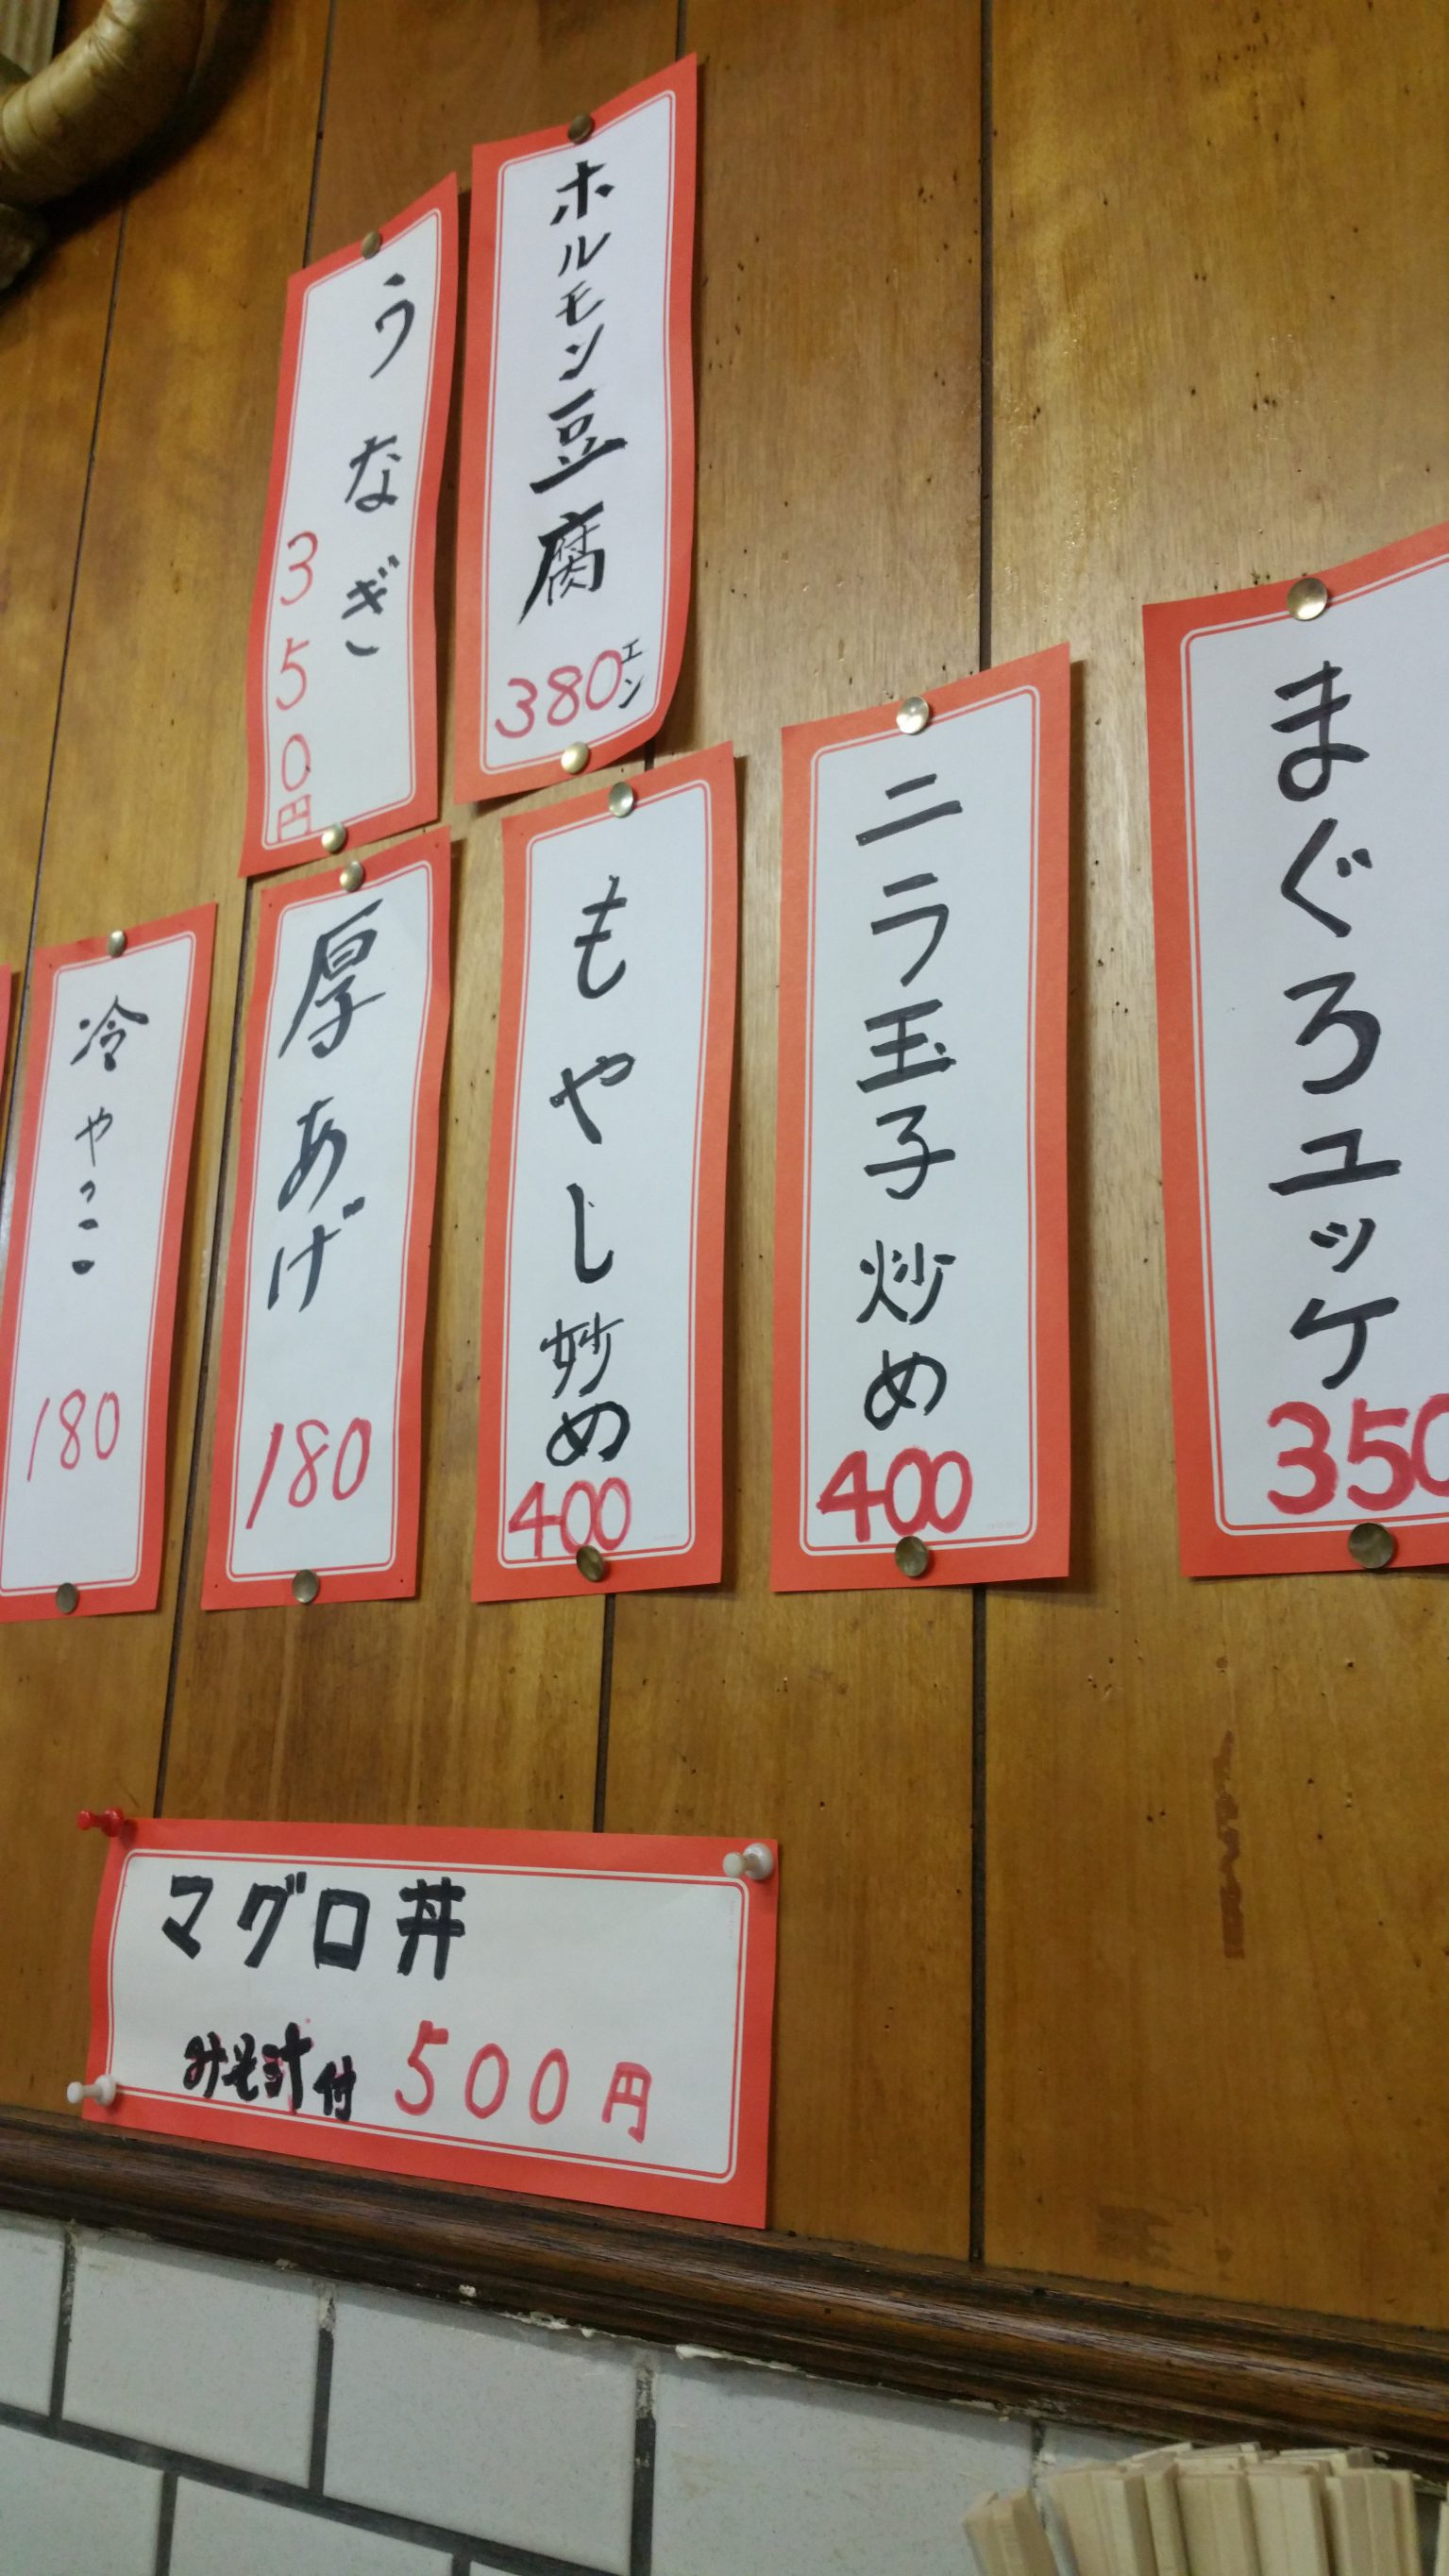 ホルモン豆腐
380エン
うなぎ
350円
まぐろユッケ
350
ニラ玉子炒め
400
もやし妙め
400
厚あげ
180
冷やっこ
180
マグロ丼
みそ汁付 500円